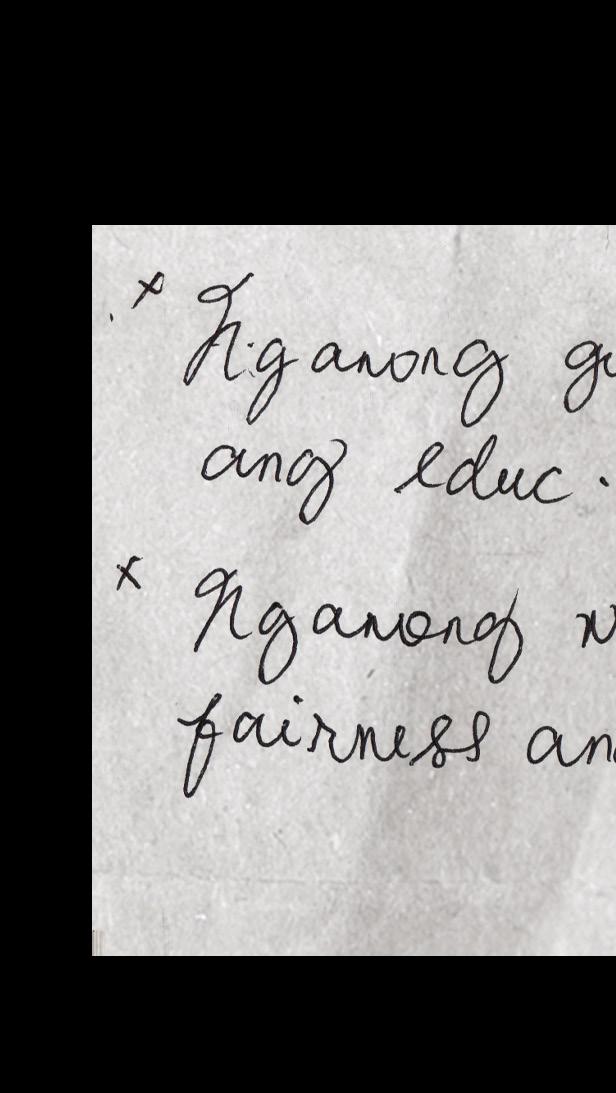 x Nganong
ang educ.
x Nganong
fairness